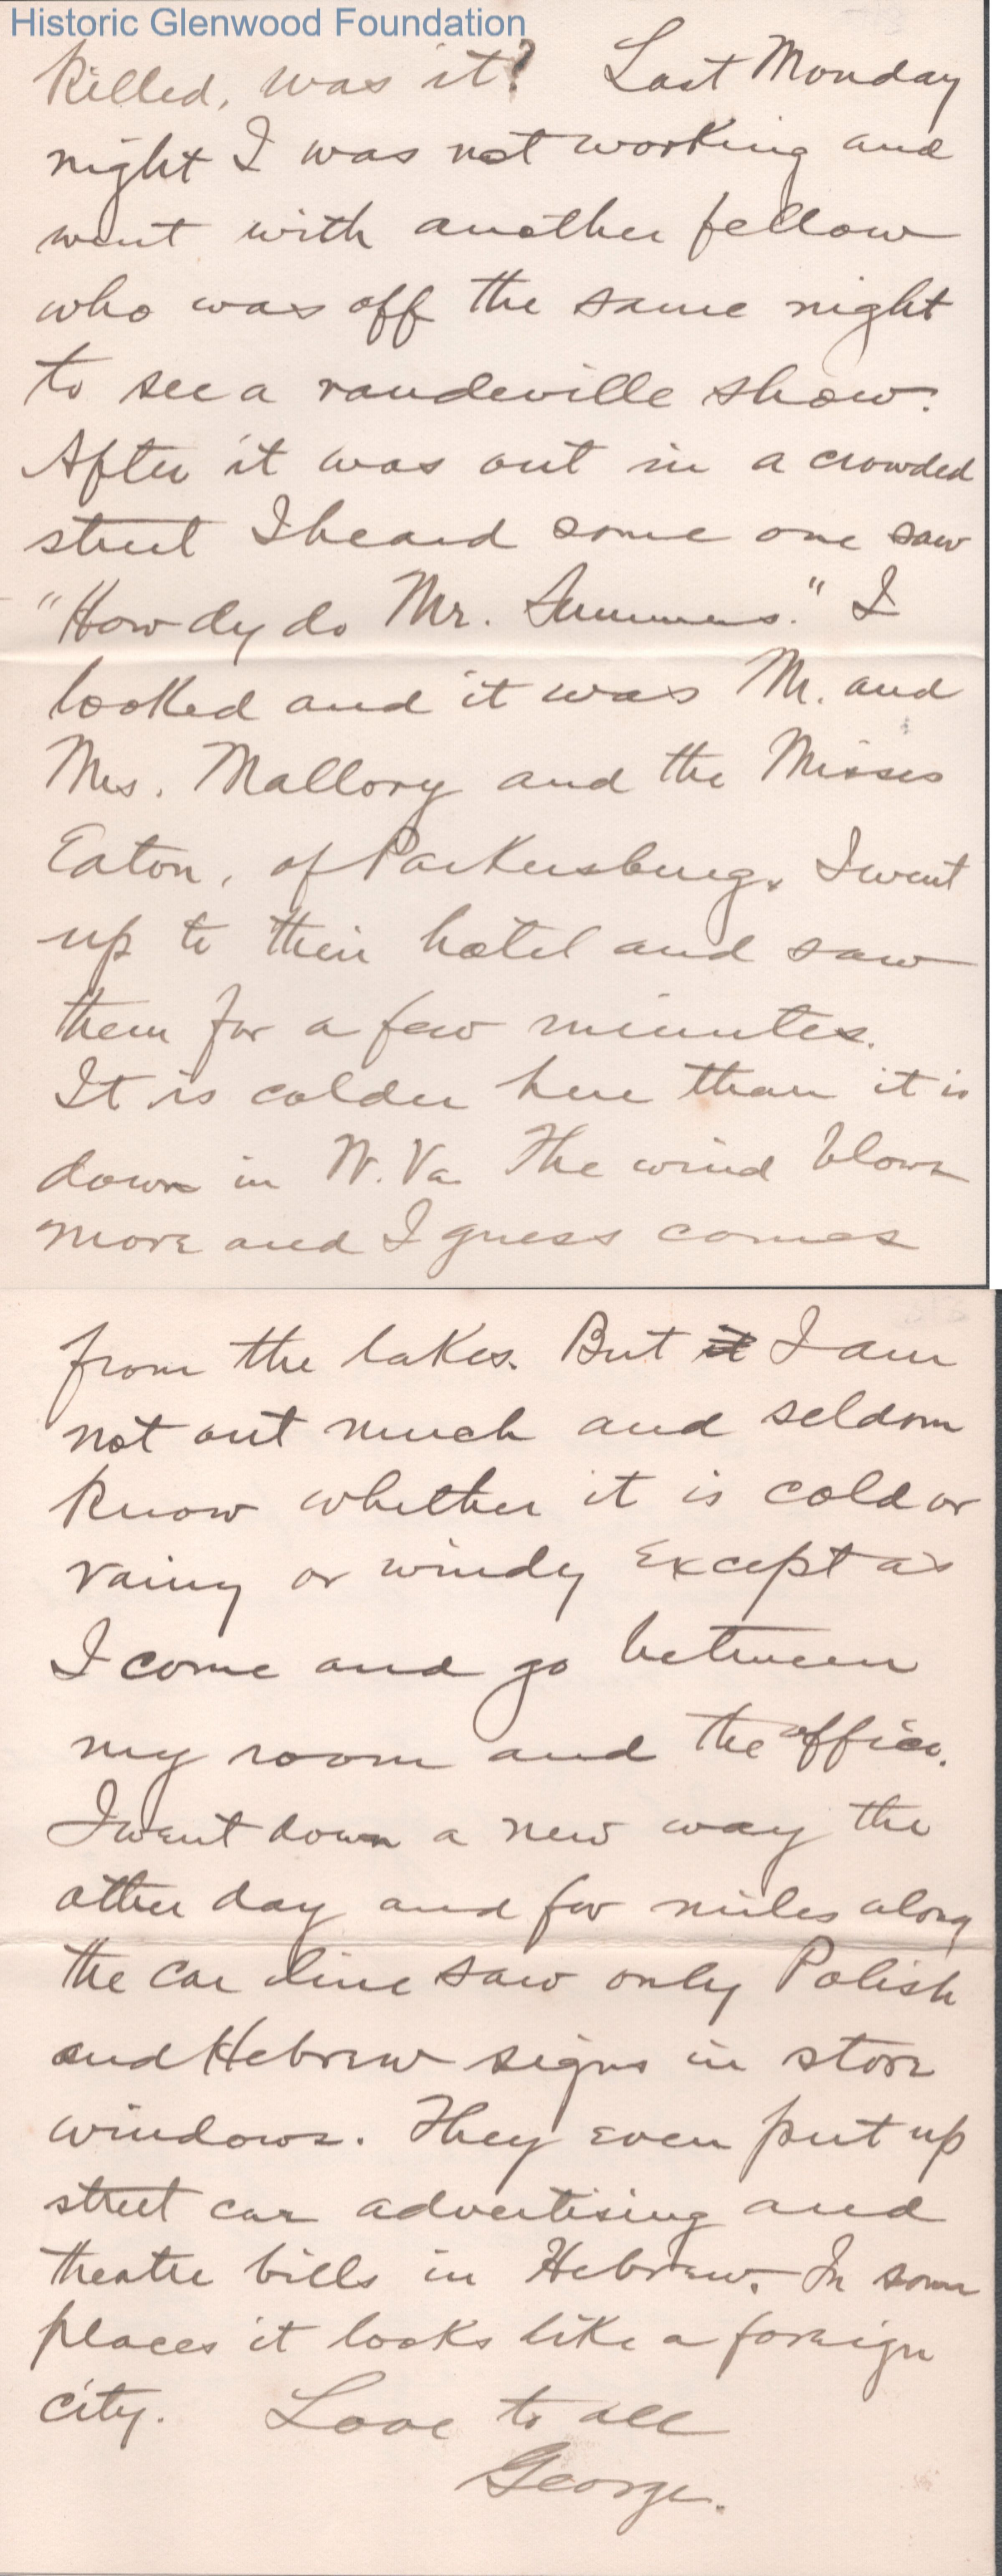 Historic Glenwood Foundation
killed, was it? Last Monday
night I was not working and
went with another fellow
who was off the same night
to see a vaudeville show.
After it was out in a crowded
street I heard some one saw
"Howdy do Mr. Summers." I
looked and it was Mr. and
Mrs. Mallory and the Misses
Eaton, of Parkersburg. I went
up to their hotel and saw
them for a few minutes.
It is colder here than it is
down in W. Va. The wind blows
more and I guess comes
from the lakes. But it I am
not out much and seldom
know whether it is cold or
rainy or windy except as
I come and go between
my room and the office.
I went down a new way the
other day and for miles along
the car line saw only Polish
and Hebrew signs in store
windows. They even put up
street car advertising and
theatre bills in Hebrew. In some
places it looks like a foreign
city. Love to all
George.